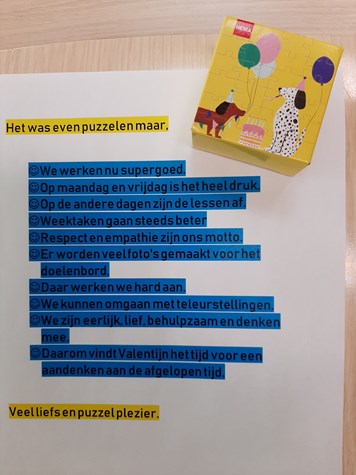 HEMA
Het was even puzzelen maar,
☺We werken nu supergoed.
☺Op maandag en vrijdag is het heel druk.
☺Op de andere dagen zijn de lessen af.
☺Weektaken gaan steeds beter
☺Respect en empathie zijn ons motto.
☺Er worden veel foto's gemaakt voor het
doelenbord.
☺Daar werken we hard aan.
☺We kunnen omgaan met teleurstellingen.
☺We zijn eerlijk, lief, behulpzaam en denken
mee.
☺Daarom vindt Valentijn het tijd voor een
aandenken aan de afgelopen tijd.
Veel liefs en puzzel plezier.